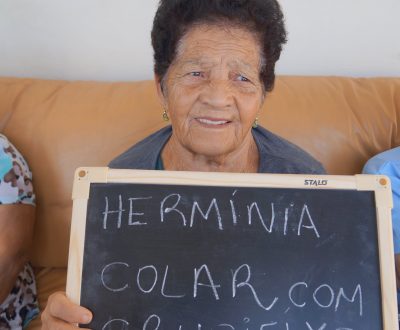 STALO
HERMÍNIA
COLAR COM